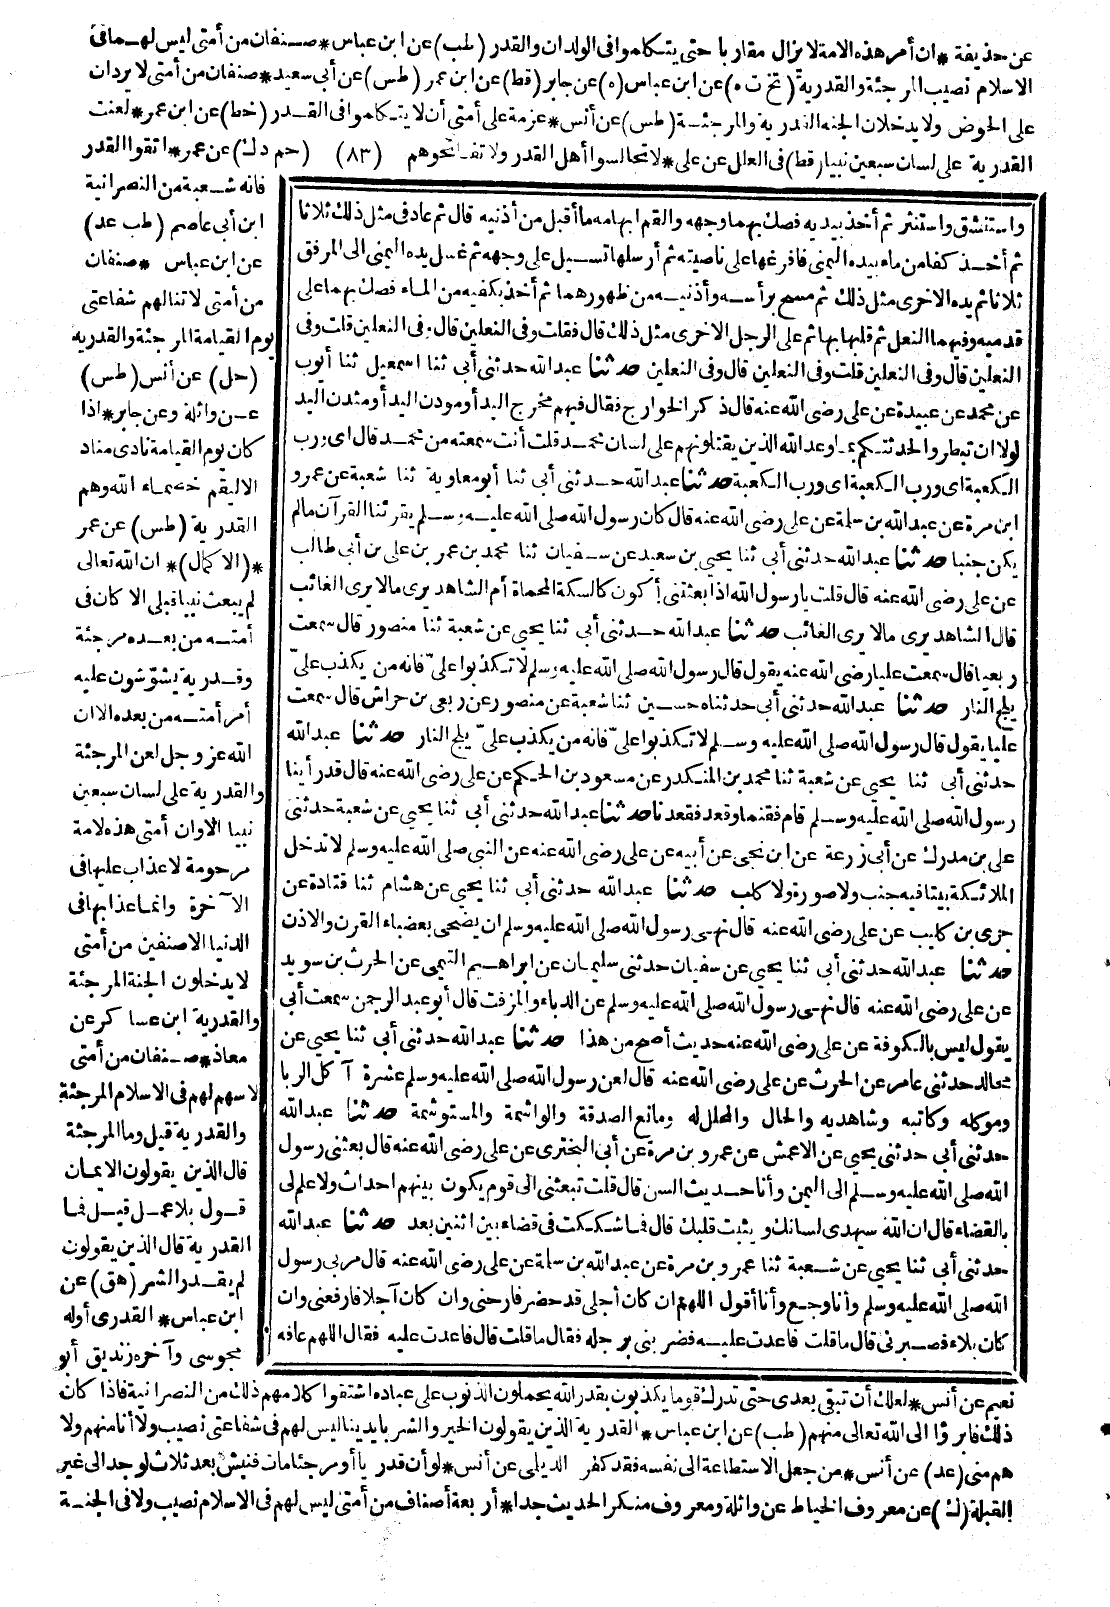 عن حذيفة * ان أمر هذه الامة لا يزال مقاربا حتى يتكلموا فى الولدان والقدر (طب) عن ابن عباس * صنفان من أمتى ليس لهما فى
الاسلام نصيب المرجئة والقدرية (تخ ت ه) عن ابن عباس (ه) عن جابر (قط) عن ابن عمر (طس) عن أبى سعيد * صنفان من أمتى لا يردان
على الحوض ولا يدخلان الجنة القدرية والمرجئة (طس) عن أنس * عزمة على أمتى أن لا يتكلموا فى القدر (خط) عن ابن عمر * لعنت
القدرية على لسان سبعين نبيا (قط) فى العلل عن على * لا تجالسوا أهل القدر ولا تفاتحوهم (٨٣) (حم د ك) عن عمر * اتقوا القدر
فانه شعبة من النصرانية
ابن أبى عاصم (طب عد)
عن ابن عباس * صنفان
من أمتى لا تنالهم شفاعتى
يوم القيامة المرجئة والقدرية
(حل) عن أنس (طس)
عن واثلة وعن جابر * اذا
كان يوم القيامة نادى مناد
الا ليقم خصماء الله وهم
القدرية (طس) عن عمر
* (الاكمال) * ان الله تعالى
لم يبعث نبيا قبلى الا كان فى
أمته من بعده مرجئة
وقدرية يشوّشون عليه
أمر أمته من بعده الا ان
الله عز وجل لعن المرجئة
والقدرية على لسان سبعين
نبيا الا وان أمتى هذه لامة
مرحومة لا عذاب عليها فى
الآخرة وانما عذابها فى
الدنيا الا صنفين من أمتى
لا يدخلون الجنة المرجئة
والقدرية ابن عساكر عن
معاذ * صنفان من أمتى
لا سهم لهم فى الاسلام المرجئة
والقدرية قيل وما المرجئة
قال الذين يقولون الايمان
قول بلا عمل قيل فما
القدرية قال الذين يقولون
لم يقدر الشر (هق) عن
ابن عباس * القدرى أوله
مجوسى وآخره زنديق أبو
واستنشق واستنثر ثم أخذ بيديه فصك بهما وجهه وألقم ابهامه ما أقبل من أذنيه قال ثم عاد فى مثل ذلك ثلاثا
ثم أخذ كفا من ماء بيده اليمنى فافرغها على ناصيته ثم أرسلها تسيل على وجهه ثم غسل يده اليمنى الى المرفق
ثلاثا ثم يده الاخرى مثل ذلك ثم مسح برأسه وأذنيه من ظهورهما ثم أخذ بكفيه من الماء فصك بهما على
قدميه وفيهما النعل ثم قلبها بها ثم على الرجل الاخرى مثل ذلك قال فقلت وفى النعلين قال وفى النعلين قلت وفى
النعلين قال وفى النعلين قلت وفى النعلين قال وفى النعلين حدثنا عبد الله حدثنى أبى ثنا اسمعيل ثنا أيوب
عن محمد عن عبيدة عن على رضى الله عنه قال ذكر الخوارج فقال فيهم مخرج اليد أو مودن اليد أو مثدن اليد
لولا ان تبطروا لحدثتكم بما وعد الله الذين يقتلونهم على لسان محمد قلت أنت سمعته من محمد قال اى ورب
الكعبة اى ورب الكعبة اى ورب الكعبة حدثنا عبد الله حدثنى أبى ثنا أبو معاوية ثنا شعبة عن عمرو
ابن مرة عن عبد الله بن سلمة عن على رضى الله عنه قال كان رسول الله صلى الله عليه وسلم يقرئنا القرآن مالم
يكن جنبا حدثنا عبد الله حدثنى أبى ثنا يحيى بن سعيد عن سفيان ثنا محمد بن عمر بن على بن أبى طالب
عن على رضى الله عنه قال قلت يا رسول الله اذا بعثتنى أكون كالسكة المحماة أم الشاهد يرى مالا يرى الغائب
قال الشاهد يرى مالا يرى الغائب حدثنا عبد الله حدثنى أبى ثنا يحيى عن شعبة ثنا منصور قال سمعت
ربعيا قال سمعت عليا رضى الله عنه يقول قال رسول الله صلى الله عليه وسلم لا تكذبوا علىّ فانه من يكذب علىّ
يلج النار حدثنا عبد الله حدثنى أبى حدثناه حسين ثنا شعبة عن منصور عن ربعى بن حراش قال سمعت
عليا يقول قال رسول الله صلى الله عليه وسلم لا تكذبوا علىّ فانه من يكذب علىّ يلج النار حدثنا عبد الله
حدثنى أبى ثنا يحيى عن شعبة ثنا محمد بن المنكدر عن مسعود بن الحكم عن على رضى الله عنه قال قد رأينا
رسول الله صلى الله عليه وسلم قام فقمنا وقعد فقعدنا حدثنا عبد الله حدثنى أبى ثنا يحيى عن شعبة حدثنى
على بن مدرك عن أبى زرعة عن ابن نجى عن أبيه عن على رضى الله عنه عن النبى صلى الله عليه وسلم لا تدخل
الملائكة بيتا فيه جنب ولا صورة ولا كلب حدثنا عبد الله حدثنى أبى ثنا يحيى عن هشام ثنا قتادة عن
جرى بن كليب عن على رضى الله عنه قال نهى رسول الله صلى الله عليه وسلم ان يضحى بعضباء القرن والاذن
حدثنا عبد الله حدثنى أبى ثنا يحيى عن سفيان حدثنى سليمان عن ابراهيم التيمى عن الحرث بن سويد
عن على رضى الله عنه قال نهى رسول الله صلى الله عليه وسلم عن الدباء والمزفت قال أبو عبد الرحمن سمعت أبى
يقول ليس بالكوفة عن على رضى الله عنه حديث أصح من هذا حدثنا عبد الله حدثنى أبى ثنا يحيى عن
مجالد حدثنى عامر عن الحرث عن على رضى الله عنه قال لعن رسول الله صلى الله عليه وسلم عشرة آكل الربا
وموكله وكاتبه وشاهديه والحال والمحلل له ومانع الصدقة والواشمة والمستوشمة حدثنا عبد الله
حدثنى أبى حدثنى يحيى عن الاعمش عن عمرو بن مرة عن أبى البخترى عن على رضى الله عنه قال بعثنى رسول
الله صلى الله عليه وسلم الى اليمن وأنا حديث السن قال قلت تبعثنى الى قوم يكون بينهم احداث ولا علم لى
بالقضاء قال ان الله سيهدى لسانك ويثبت قلبك قال فما شككت فى قضاء بين اثنين بعد حدثنا عبد الله
حدثنى أبى ثنا يحيى عن شعبة ثنا عمرو بن مرة عن عبد الله بن سلمة عن على رضى الله عنه قال مر بى رسول
الله صلى الله عليه وسلم وأنا وجع وأنا أقول اللهم ان كان أجلى قد حضر فارحنى وان كان آجلا فارفعنى وان
كان بلاء فصبرنى قال ما قلت فاعدت عليه فضربنى برجله فقال ما قلت قال فاعدت عليه فقال اللهم عافه
نعيم عن أنس * لعلك أن تبقى بعدى حتى تدرك قوما يكذبون بقدر الله يحملون الذنوب على عباده اشتقوا كلامهم ذلك من النصرانية فاذا كان
ذلك فابرؤا الى الله تعالى منهم (طب) عن ابن عباس * القدرية الذين يقولون الخير والشر بايدينا ليس لهم فى شفاعتى نصيب ولا أنا منهم ولا
هم منى (عد) عن أنس * من جعل الاستطاعة الى نفسه فقد كفر الديلمى عن أنس * لو أن قدريا أو مرجئا مات فنبش بعد ثلاث لوجد الى غير
القبلة (ك) عن معروف الخياط عن واثلة ومعروف منكر الحديث جدا * أربعة أصناف من أمتى ليس لهم فى الاسلام نصيب ولا فى الجنة